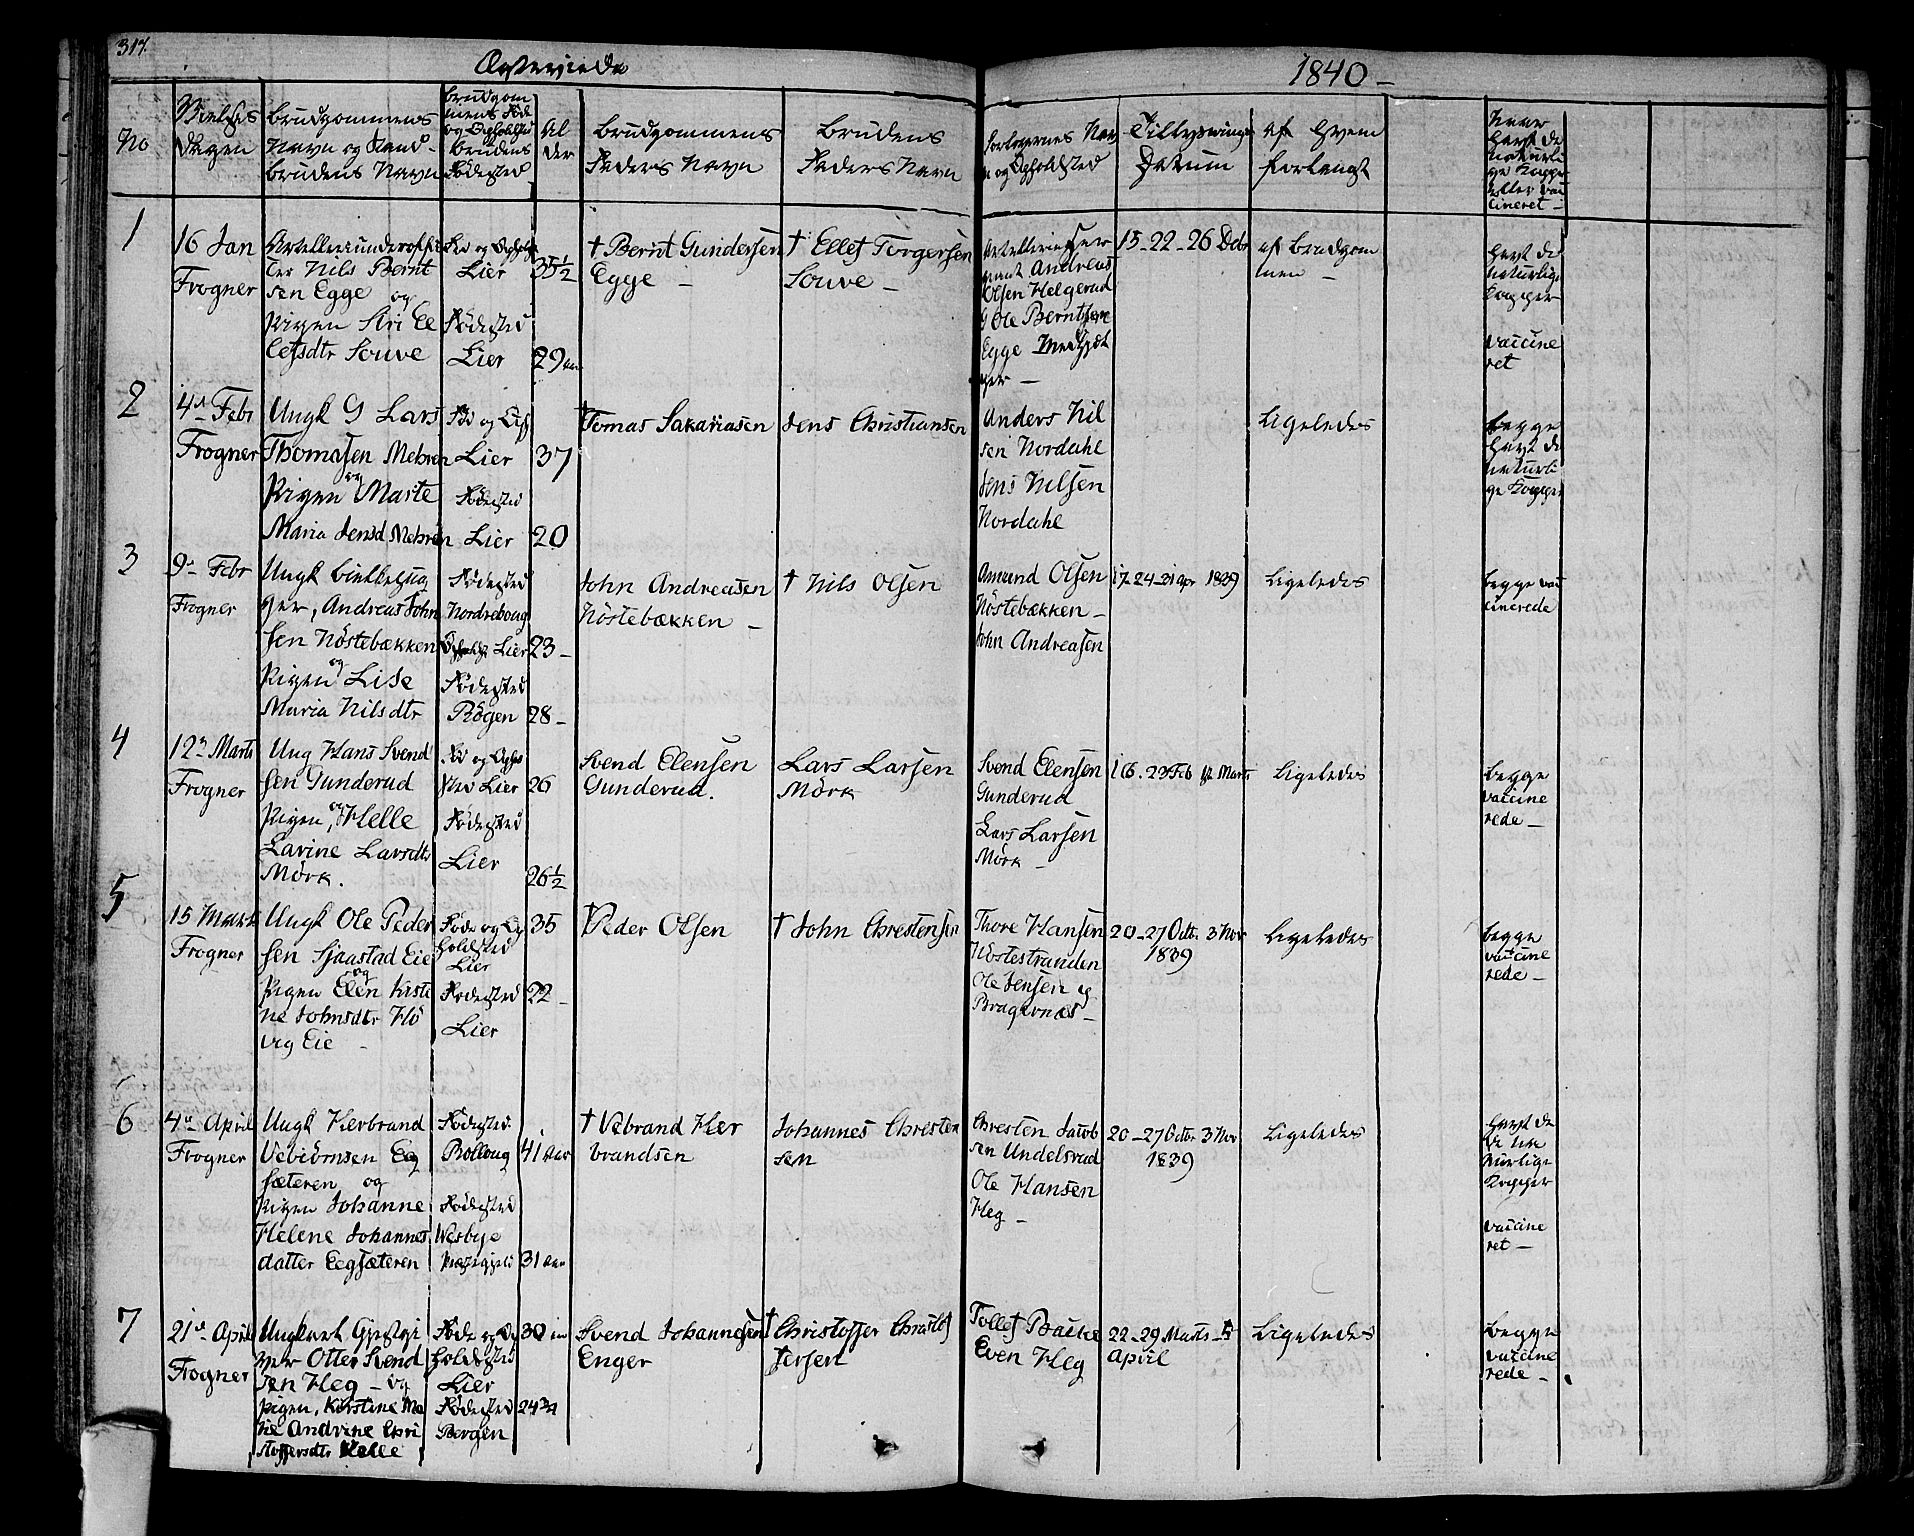 317.
Ægteviede
1840 -
No
Vielses
Dagen
Brudgommens
Navn og Stand -
Brudens Navn
Brudgom
mens Føde
og Opholdsted
Brudens
Fødested
Al
der
Brudgommens
Faders Navn
Brudens
Faders Navn
Forlovernes Nav
n og Opholdsted
Tillysnings
Datum
Af Hvem
forlangt
Naar
havt de
naturli
ge Kopper
eller vac
cineret -
1
16 Jan
Frogner
Artellerieunderoffi
cer Nils Bernt
sen Egge og
Pigen Siri El
lefsdtr Souve
Fød og Ophold
Lier
Fødested
Lier
35 1/2
29 aar
† Bernt Gundersen
Egge -
† Ellef Torgersen
Souve -
Artellerie Ser
gant Andreas
Olsen Helgerud
Ole Berntsen
Egge
15-22-26 Debr
af Brudgom
men -
havt de
naturlige
Kopper
vaccine
ret
2
4d Febr
Frogner
Ungk G Lars
Thomasen Mehren
og
Pigen Marte
Maria Jensd Mehren
Fød og Oph
Lier
Fødested
Lier
37
20
† Tomas Sakariasen
Jens Christiansen
Anders Nil
sen Nordahl
Jens Nilsen
Nordahl
Ligeledes
begge
havt de
naturli
ge Kopper
3
9de Febr
Frogner
Ungk
ger, Andreas John
sen Nöstebækken
og
Pigen Lise
Maria Nilsdtr
Fødested
Nordrehoug
Ophold Lier
Fødested
Rögen
23 -
28 -
John Andreasen
Nöstebækken -
† Nils Olsen
Amund Olsen
Nöstebækken -
John Andreasen
17-24-31 apr 1839
Ligeledes
begge vac
cinerede
4
12te Marts
Frogner
Ung Hans Svend
sen Gunderud
Pigen, og Helle
Larine Larsdtr
Mörk.
Fød og Ophol
sted Lier
Fødested
Lier
26
26 1/2
Svend Elensen
Gunderud.
Lars Larsen
Mörk
Svend Elensen
Gunderud
Lars Larsen
Mörk -
16. 23 Feb Marts
Ligeledes
begge
vaccine
rede -
5
15 Marts
Frogner
Ungk Ole Peder
sen Sjaastad Eie
og
Pigen Elen Kirsti
ne Johnsdtr Hö
vig Eie -
Føde og Op
holdsted
Lier
Fødested
Lier
35
22 -
† Peder Olsen
† John Chrestensen
Thore Hansen
Nöstestranden
Ole Jensen
Bragernæs -
20-27 Octr. 3 Nov
1839
Ligeledes
begge
vaccine
rede -
6
4de April
Frogner
Ungk Herbrand
Vebiörnsen Eg
sæteren og
Pigen Johanne
Helene Johannes
datter Eegsæteren
Fødested
Bolloug
Fødested
Wesbye
Præstegjeld
41 aar
31 aar
† Vebrand Her
brandsen
Johannes Chresten
sen
Chresten Jacob
sen Undelsrud
Ole Hansen
Heg -
20-27 Octbr 3 Nov
1839
Ligeledes
havt de
de na
turlige
Kopper
vaccine
ret -
7
21de April
Frogner
Ungkarl Gjestgi
ver Otter Svend
sen Heg - og
Pigen, Kirstine Ma
rie Andrine Chri
stoffersdtr Helle
Føde og Op
holdsted
Lier
Fødested
Bergen
30
24 3/4
Svend Johannesen
Enger
† Christoffer Christof
fersen
Tollef Bache
Even Heg
22-29 Marts - 5
April
Ligeledes
begge
vaccine
rede -